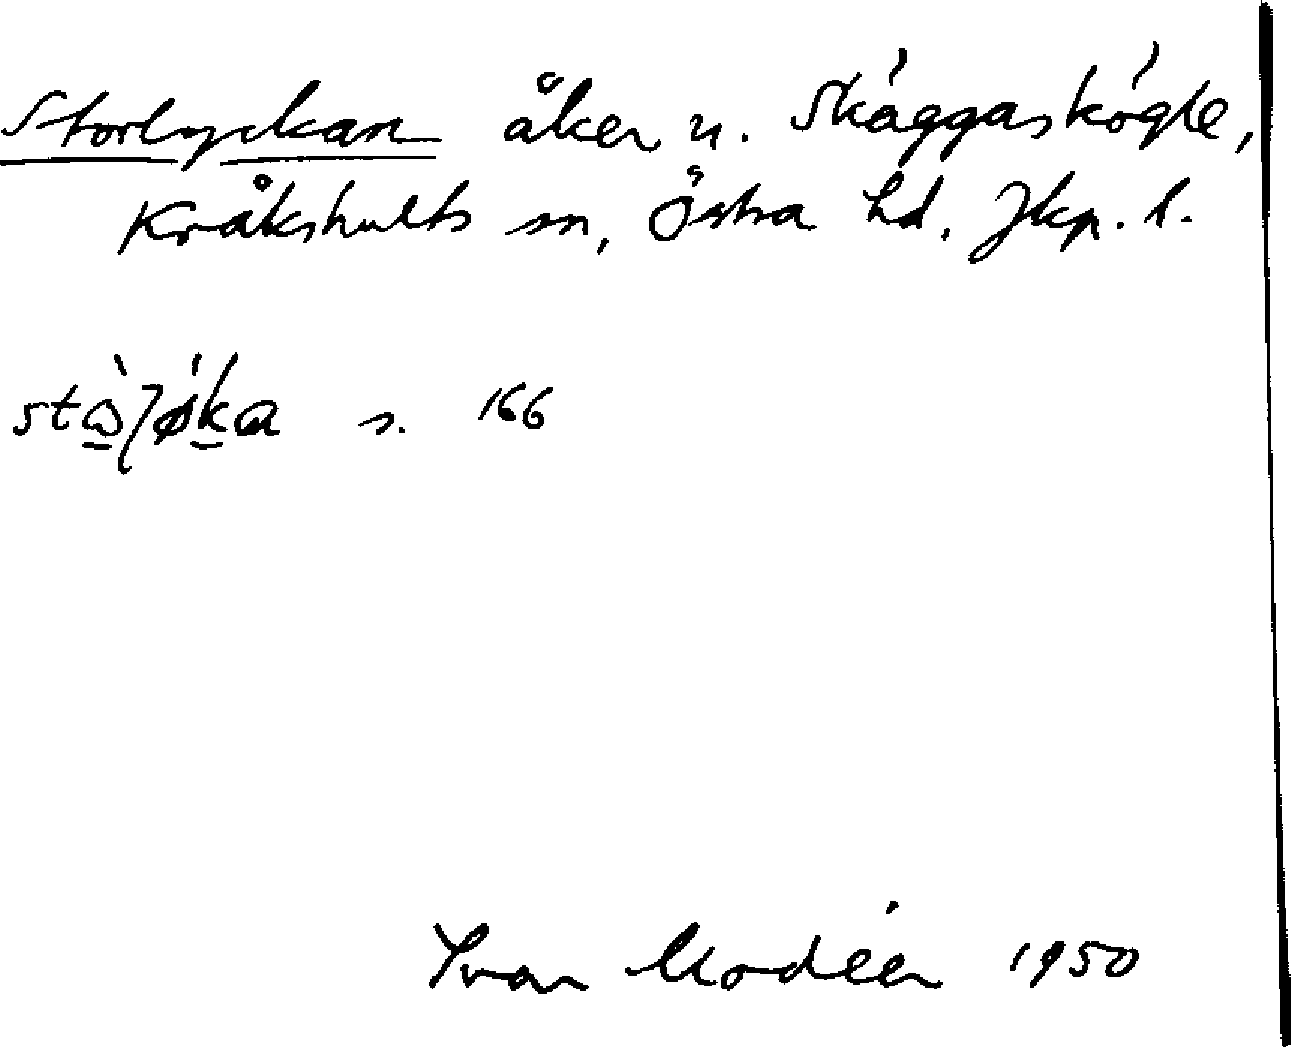 Storlyckan åker u. Skäggaskögle,
Kråkshults sn, Östra hd, Jkp. l.
s. 166
Yvan Modéer 1950